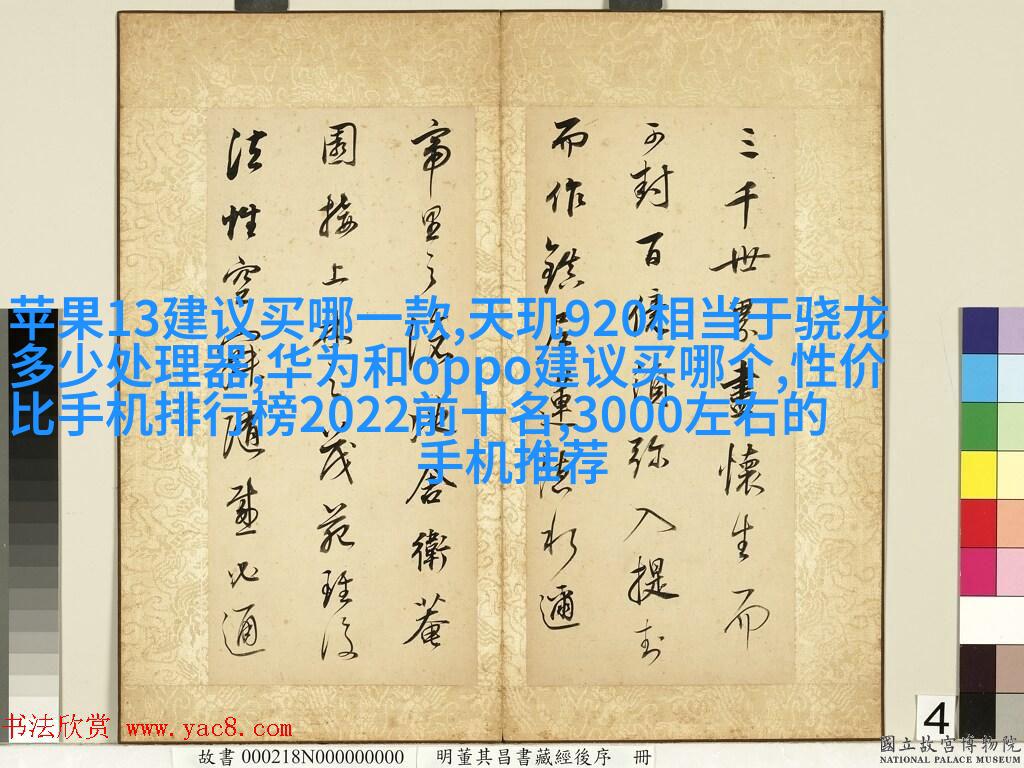 三千世界盡懷生而
可封百億須彌入提封
而作鎮居
舍衛菴
園接上林之茂苑
法性空寂隨感必通
苹果13建议买哪一款,天玑920相当于骁龙
多少处理器,华为和oppo建议买哪个,性价
比手机排行榜2022前十名,3000左右的
手机推荐
书法欣赏 www.yac8.com
4
故書 000218N000000000 明董其昌書藏經後序 冊
國立故宮博物院
NATIONAL PALACE MUSEUM